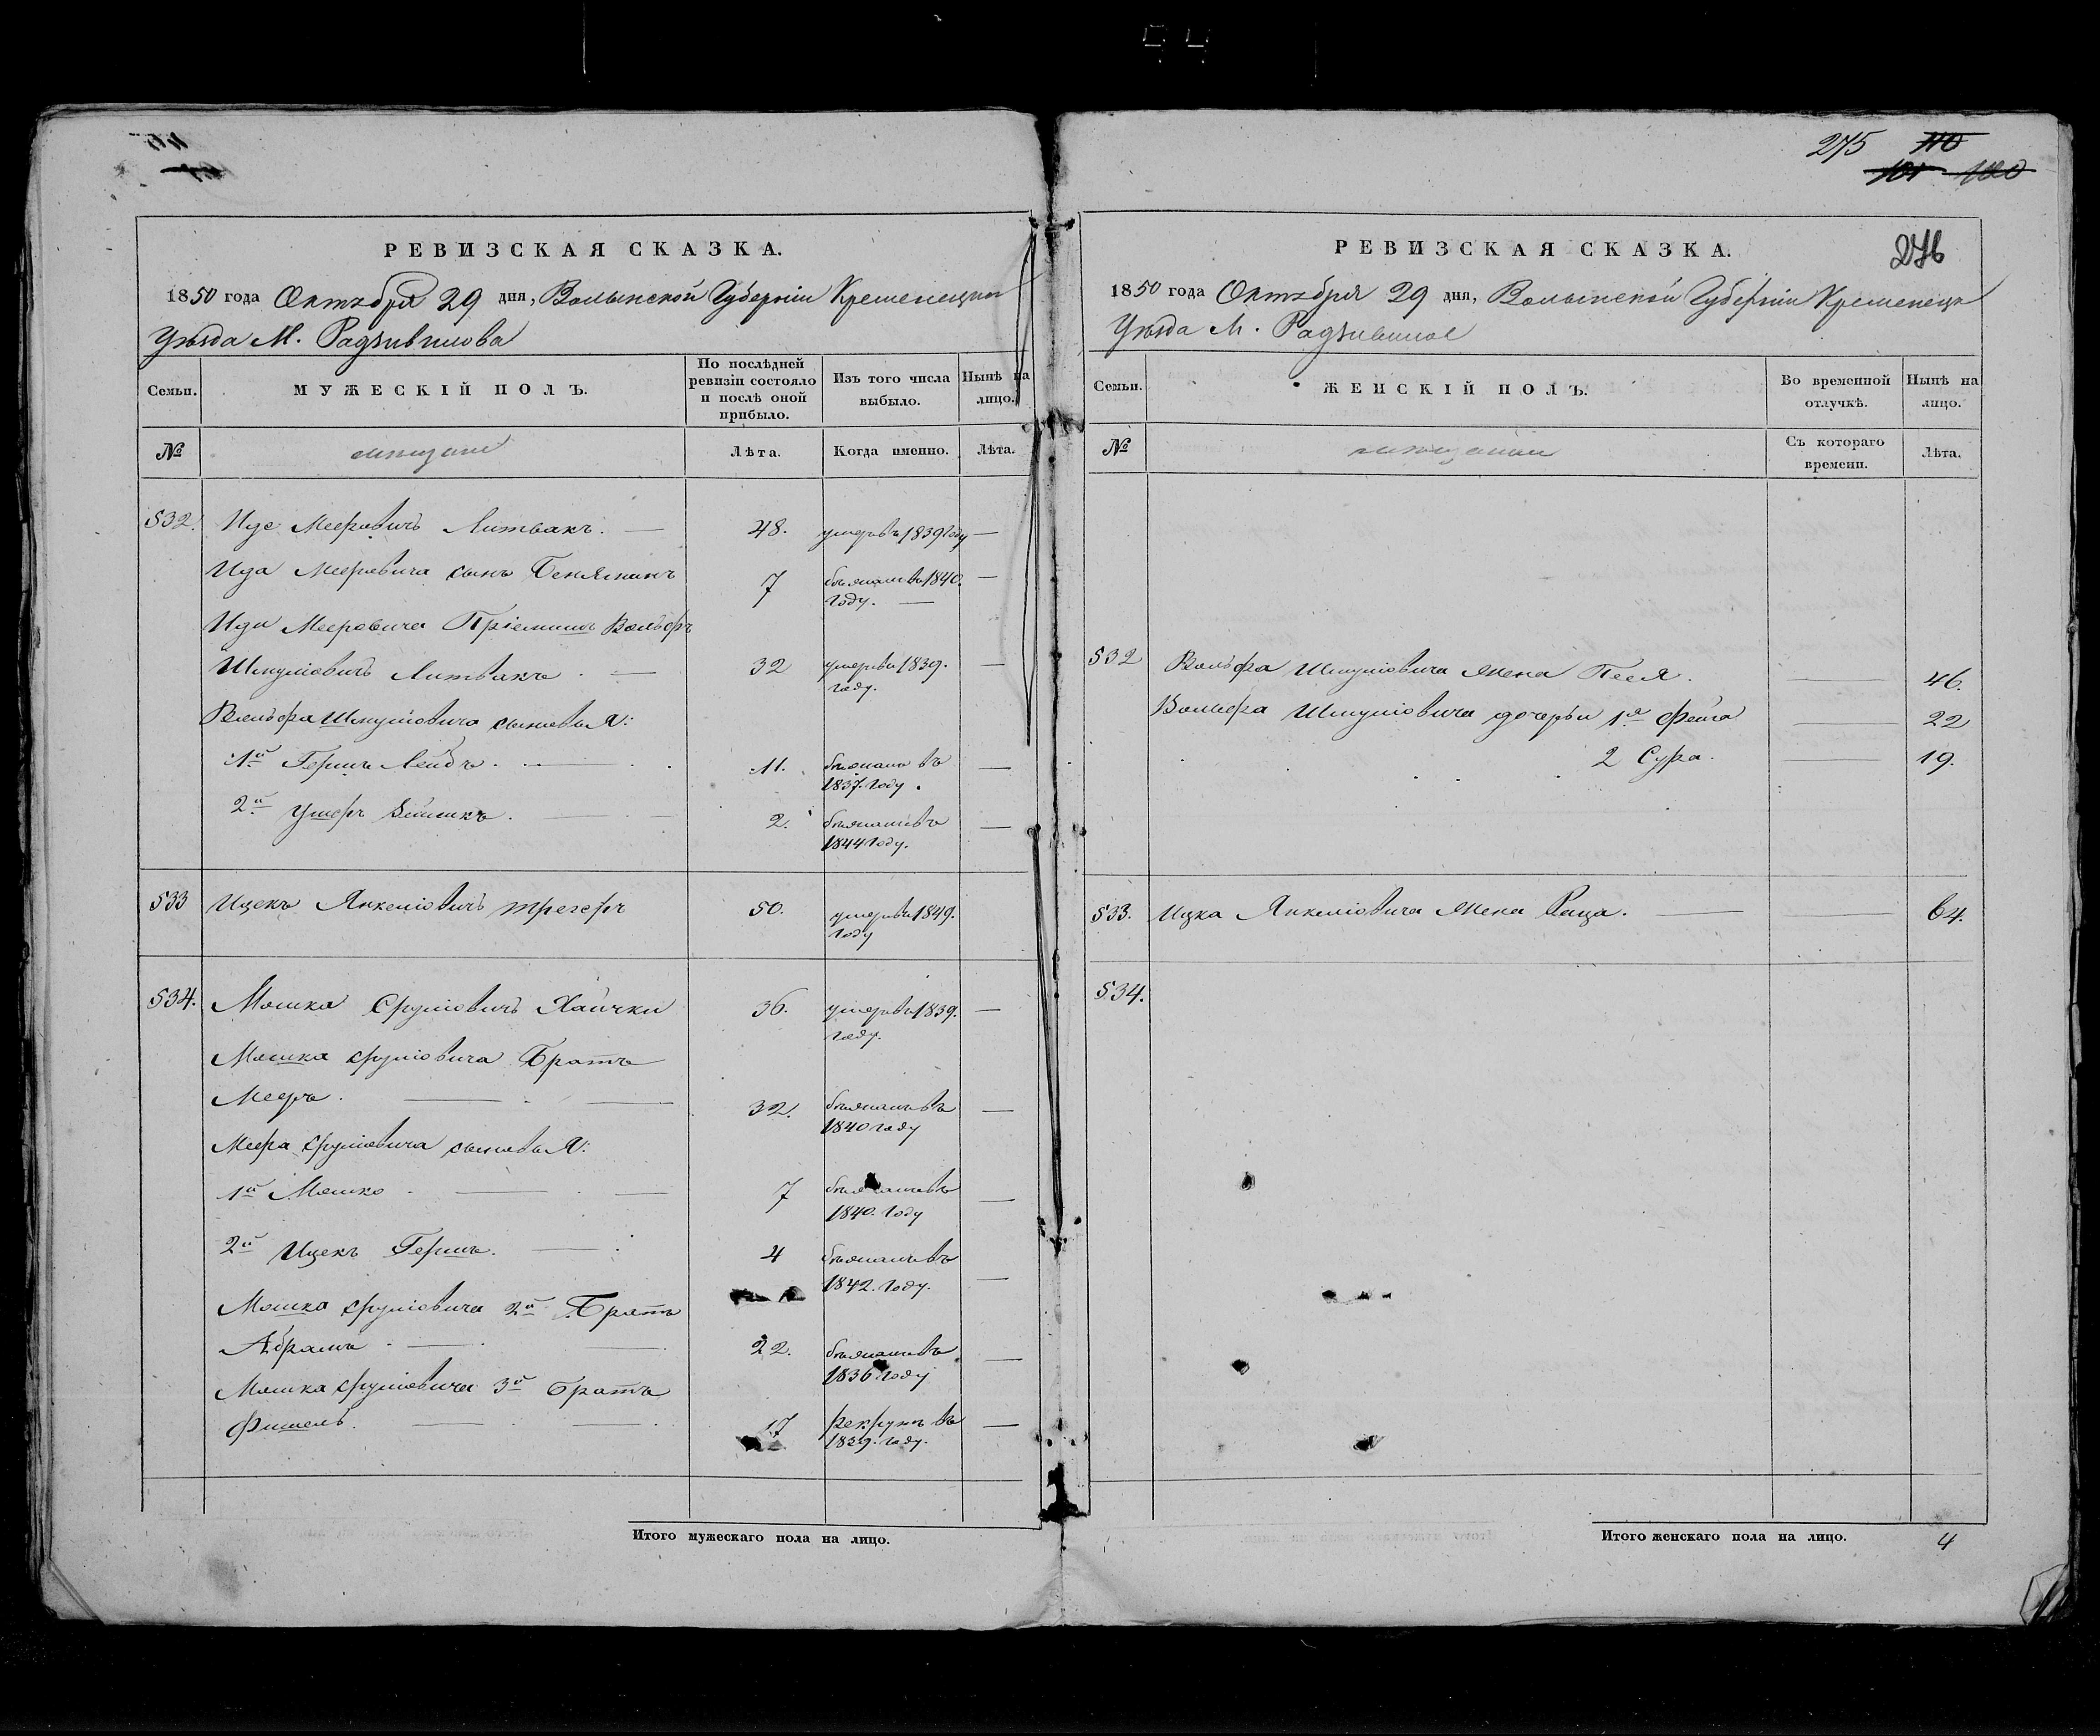 РЕВИЗСКАЯ СКАЗКА.
1850 года Октября 29 дня, Волынской Губерніи Кременецкаго
Уѣзда М. Радзивилова
Семьи.
МУЖЕСКІЙ ПОЛЪ.
По послѣдней ревизіи состояло и послѣ оной прибыло.
Изъ того числа выбыло.
Нынѣ на лицо.
№
мещане
Лѣта.
Когда именно.
Лѣта.
532. Иде Мееровичъ Литвакъ. 48. умеръ въ 1839 году
Ида Мееровича сынъ Беніяминъ 7 въ 1840. году.
Иди Мееровича Пріемышъ Вольфъ
Шмуліовичъ Литвакъ 32 умеръ въ 1839. году.
Вольфа Шмуліовича сыновья:
1й Гершъ Лейбъ. 11. въ 1837. году.
2й Ушеръ 2. въ 1844 году.
533 Ицекъ Янкеліовичъ Трегеръ 50. умеръ въ 1849. году
534. Мошка Сруліовичъ Хаички 36. умеръ въ 1839. году.
Мошка Сруліовича Братъ
Мееръ. 32. въ 1840 году
Меера Сруліовича сыновья:
1й Мошко 7 въ 1840. году
2й Ицекъ Гершъ. 4 въ 1842. году.
Мошка Сруліовича 2й Братъ
Абрамъ 22. въ 1836 году
Мошка Сруліовича 3й Братъ
Фишель. 17 рекрутъ въ 1839. году.
Итого мужескаго пола на лицо.
275 110
101 100
276
РЕВИЗСКАЯ СКАЗКА.
1850 года Октября 29 дня, Волынской Губерніи Кременецк
Уѣзда М. Радзивилов
Семьи.
ЖЕНСКІЙ ПОЛЪ.
Во временной отлучкѣ.
Нынѣ на лицо.
№
мещанки
Съ котораго времени.
Лѣта.
532 Вольфа Шмуліовича жена Песя. 46.
Вольфа Шмуліовича дочери 1я Фейга 22
2 Сура. 19.
533. Ицка Янкеліовича жена Раца. 64.
534.
Итого женскаго пола на лицо. 4